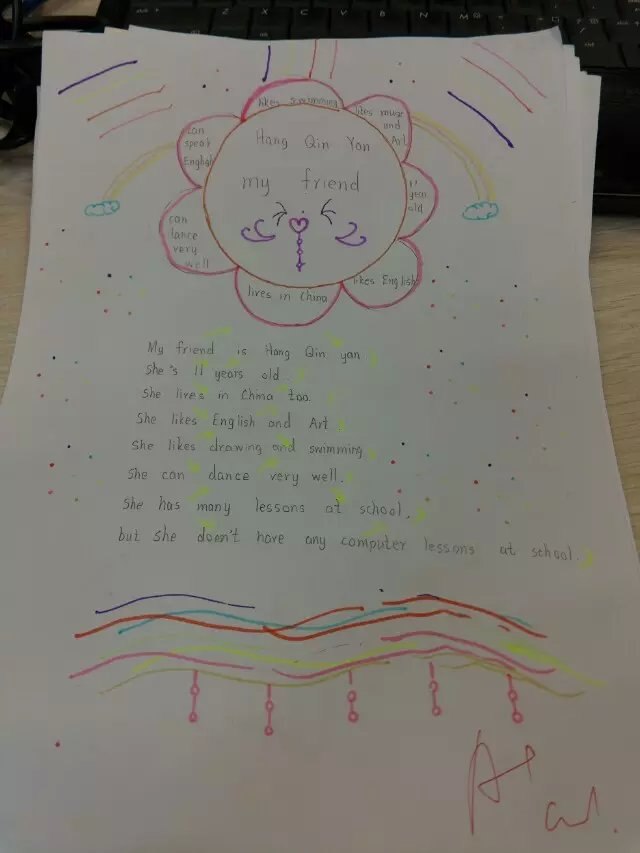 likes swimming
likes muge
and
Art
can
speak
English
Hang Qin Yan
my friend
11
year
old
can
lance
very
well
likes English
lives in China
My friend is Hang Qin yan
She's 11 years old
She lives in China too.
She likes English and Art
She likes drawing and swimming
She can dance very well.
She has many lessons at school.
but she doesn't have any computer lessons at school.
A+